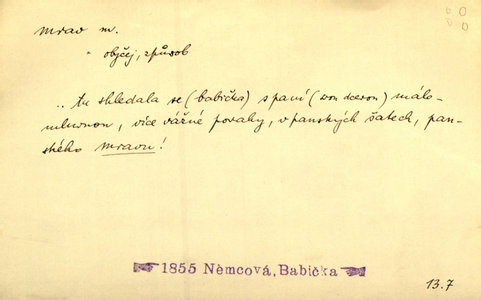 mrav m.
" obyčej, způsob
.. tu shledala se (babička) s paní (svou dcerou) málo-
mluvnou, více vážné povahy, v panských šatech, pan-
ského mravu!
1855 Němcová, Babička
13.7